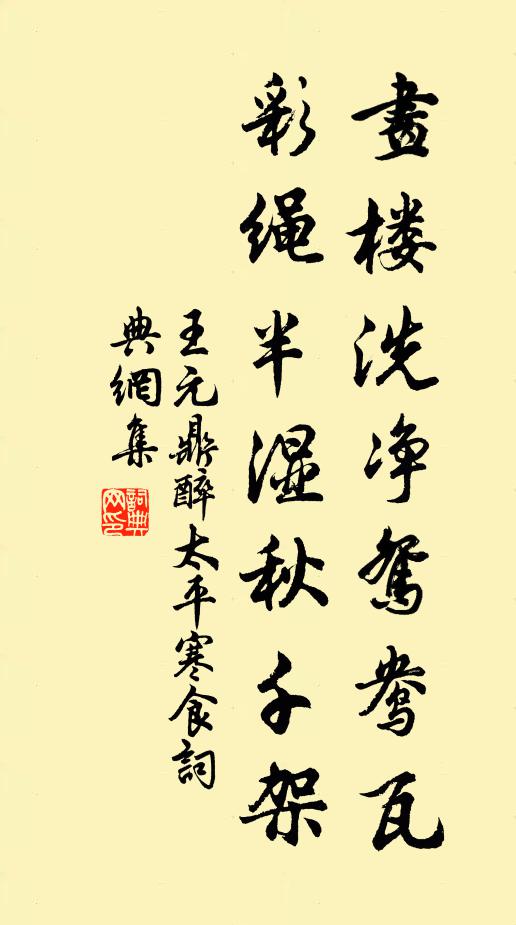 畫楼洗净鸳鸯瓦
彩绳半湿秋千架
王元鼎醉太平寒食詞
典網集
詞典網印